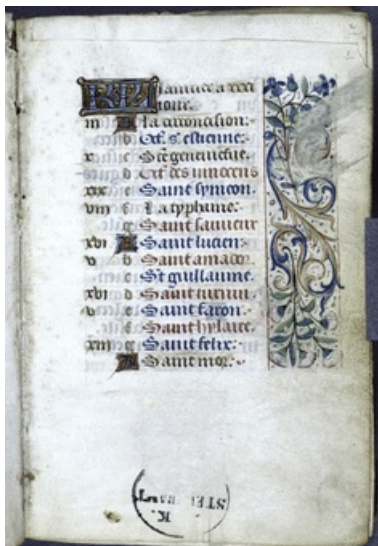 KL Januier a xxxi
iour.
iii A La circoncision.
b Oct. s. estienne.
x c Ste geneuiefue.
d Oct des innocens
xix e Saint symeon.
viii f La typhaine.
g Saint sauueur
xvi A Saint lucien.
v b Saint amador.
c St guillaume.
xiii d Saint
ii e Saint faron.
f Saint hylaire.
g Saint felix.
A Saint mor.